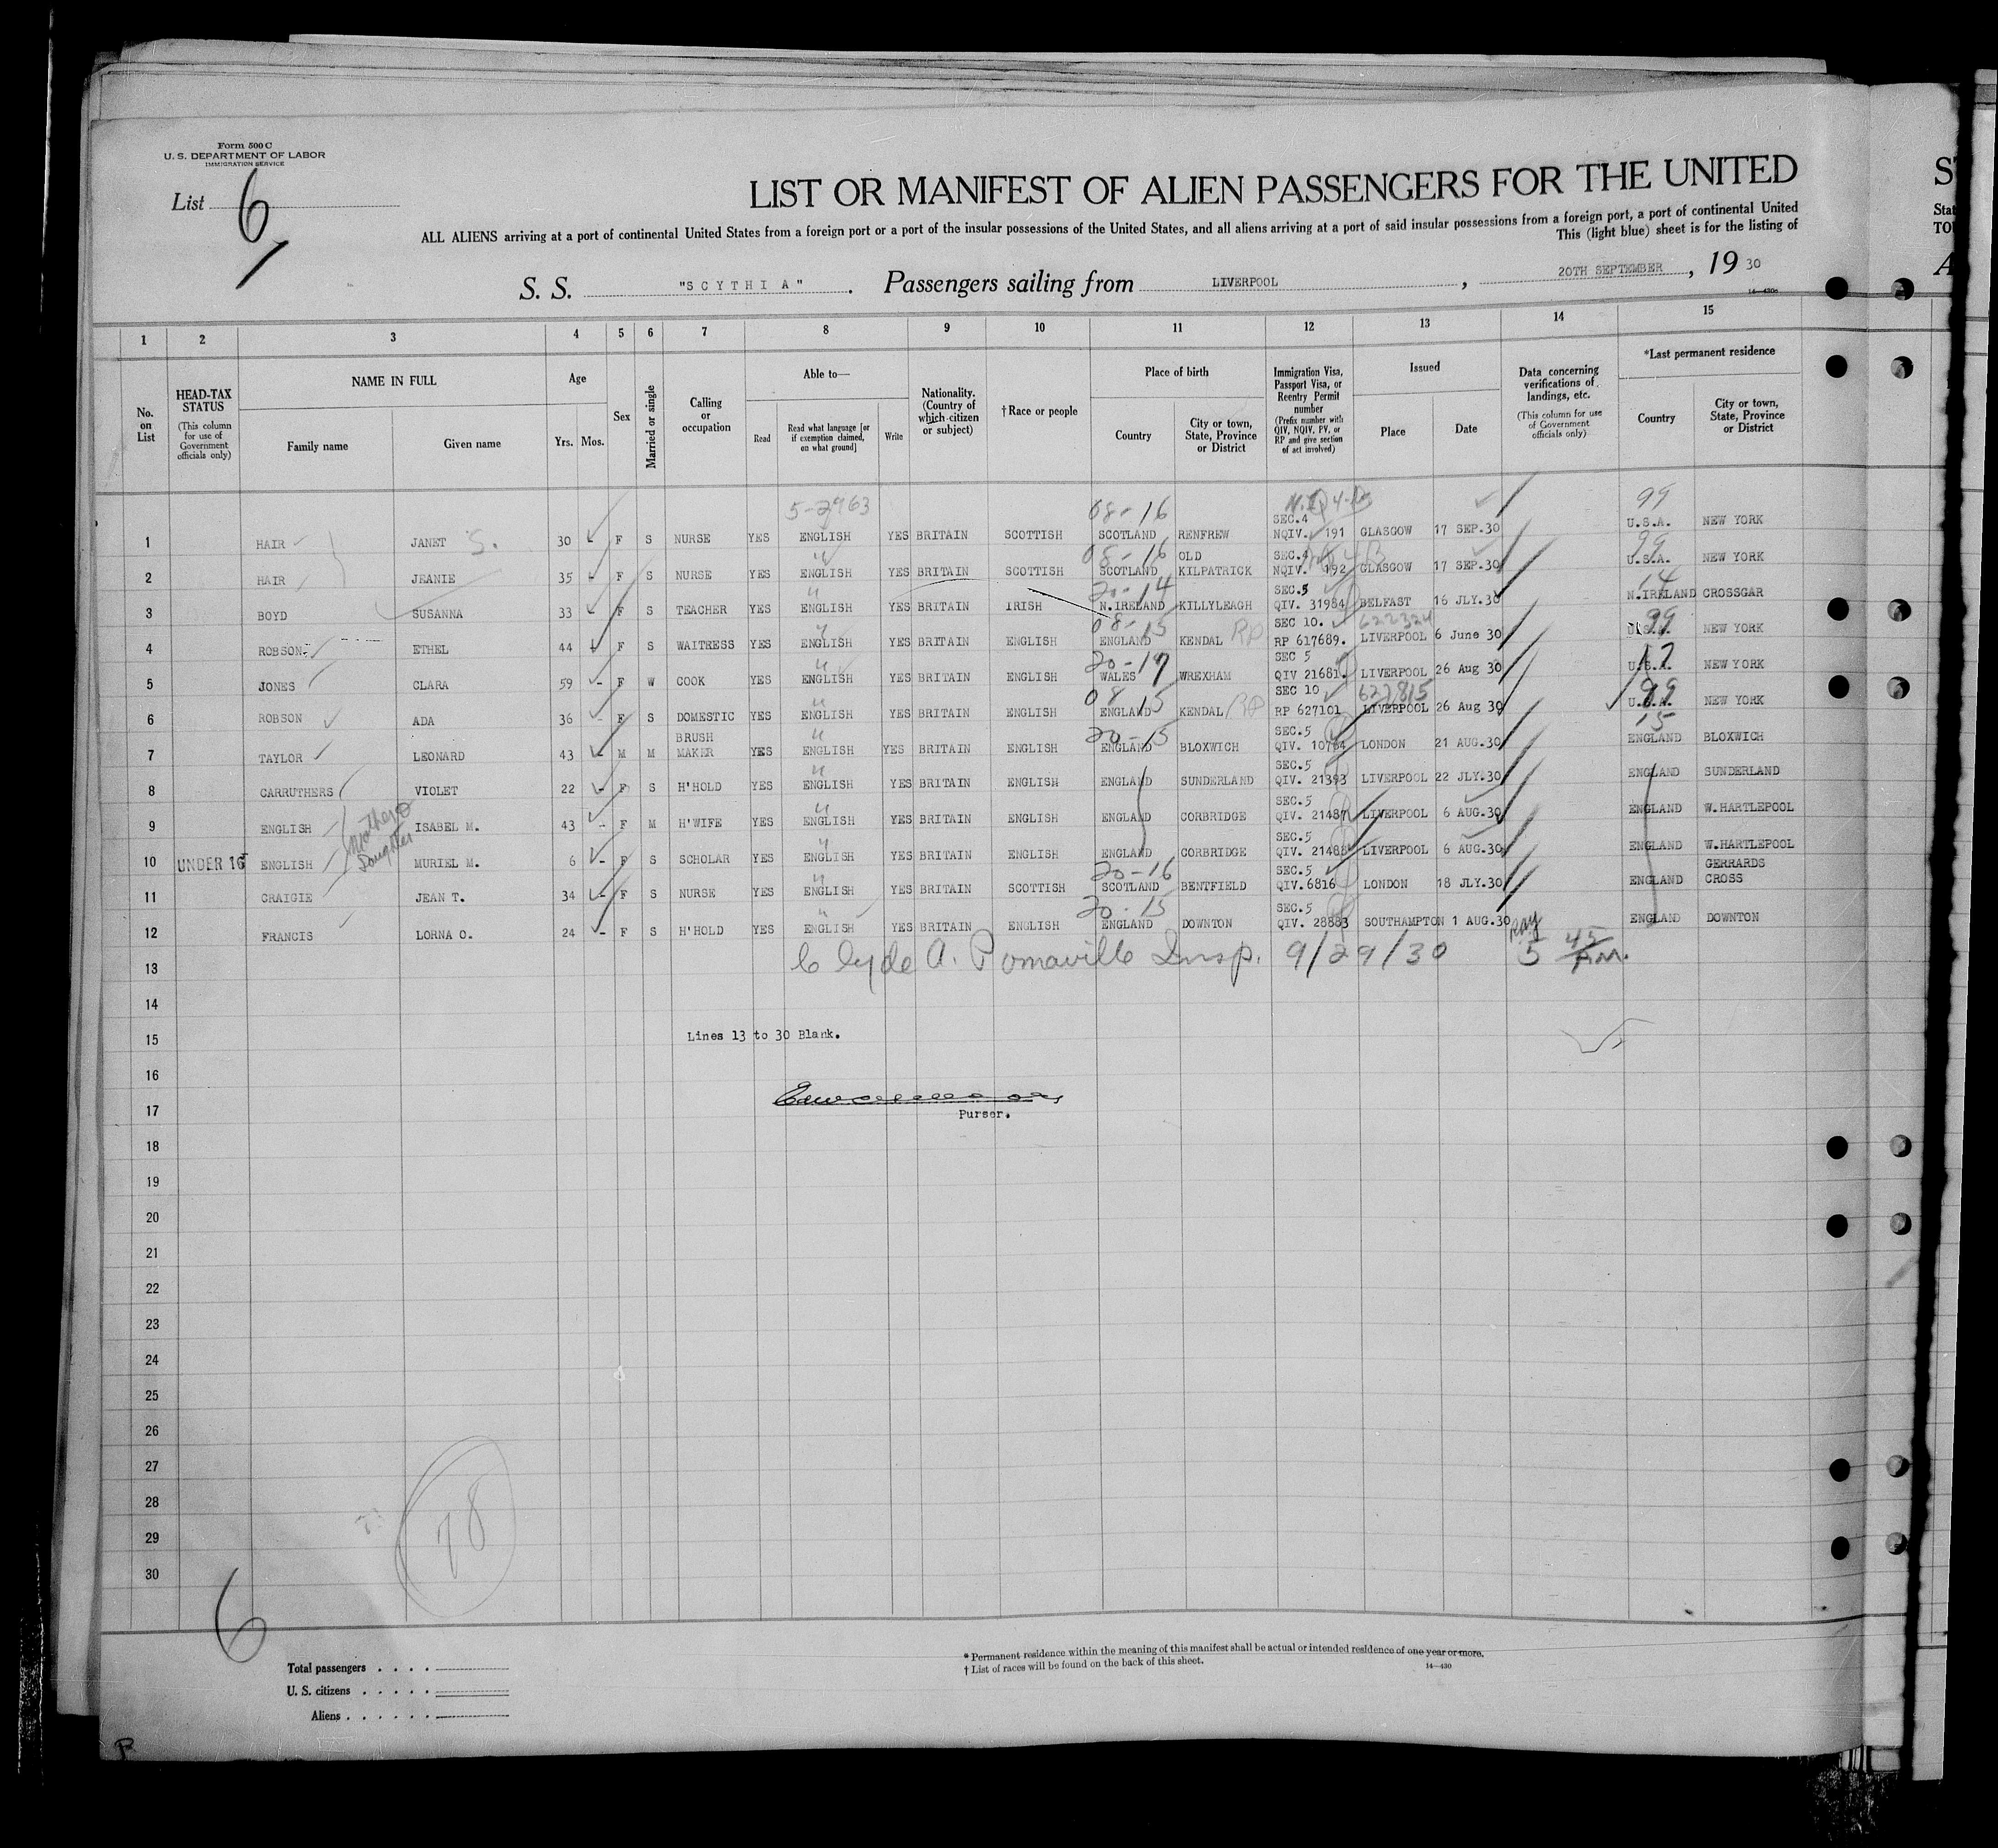 Form 500 C
U. S. DEPARTMENT OF LABOR
IMMIGRATION SERVICE
List 6
LIST OR MANIFEST OF ALIEN PASSENGERS FOR THE UNITED
ALL ALIENS arriving at a port of continental United States from a foreign port or a port of the insular possessions of the United States, and all aliens arriving at a port of said insular possessions from a foreign port, a port of continental United
This (light blue) sheet is for the listing of
S. S. "SCYTHIA". Passengers sailing from LIVERPOOL, 20TH SEPTEMBER, 19 30
1 2 3 4 5 6 7 8 9 10 11 12 13 14 15
No. on List
HEAD-TAX STATUS (This column for use of Government officials only)
NAME IN FULL Family name Given name
Age Yrs. Mos.
Sex
Married or single
Calling or occupation
Able to— Read Read what language [or if exemption claimed, on what ground] Write
Nationality. (Country of which citizen or subject)
†Race or people
Place of birth Country City or town, State, Province or District
Immigration Visa, Passport Visa, or Reentry Permit number (Prefix number with QIV, NQIV, PV, or RP and give section of act involved)
Issued Place Date
Data concerning verifications of landings, etc. (This column for use of Government officials only)
*Last permanent residence Country City or town, State, Province or District
5-2963 08-16 99
1 HAIR JANET S. 30 - F S NURSE YES ENGLISH YES BRITAIN SCOTTISH SCOTLAND RENFREW SEC.4 NQIV. 191 GLASGOW 17 SEP.30 U.S.A. NEW YORK
08-16 99
2 HAIR JEANIE 35 - F S NURSE YES ENGLISH YES BRITAIN SCOTTISH SCOTLAND OLD KILPATRICK SEC.4 NQIV. 192 GLASGOW 17 SEP.30 U.S.A. NEW YORK
20-14 14
3 BOYD SUSANNA 33 - F S TEACHER YES ENGLISH YES BRITAIN IRISH N.IRELAND KILLYLEAGH SEC.5 QIV. 31984 BELFAST 16 JLY.30 N.IRELAND CROSSGAR
08-15 RP 622324 99
4 ROBSON ETHEL 44 - F S WAITRESS YES ENGLISH YES BRITAIN ENGLISH ENGLAND KENDAL SEC 10. RP 617689. LIVERPOOL 6 June 30 U.S.A. NEW YORK
20-17 17
5 JONES CLARA 59 - F W COOK YES ENGLISH YES BRITAIN ENGLISH WALES WREXHAM SEC 5 QIV 21681. LIVERPOOL 26 Aug 30 U.S.A. NEW YORK
08 15 RP 627815 99
6 ROBSON ADA 36 - F S DOMESTIC YES ENGLISH YES BRITAIN ENGLISH ENGLAND KENDAL SEC 10 RP 627101 LIVERPOOL 26 Aug 30 U.S.A. NEW YORK
20-15 15
7 TAYLOR LEONARD 43 - M M BRUSH MAKER YES ENGLISH YES BRITAIN ENGLISH ENGLAND BLOXWICH SEC.5 QIV. 10764 LONDON 21 AUG.30 ENGLAND BLOXWICH
8 CARRUTHERS VIOLET 22 - F S H'HOLD YES ENGLISH YES BRITAIN ENGLISH ENGLAND SUNDERLAND SEC.5 QIV. 21393 LIVERPOOL 22 JLY.30 ENGLAND SUNDERLAND
Mother & Daughter
9 ENGLISH ISABEL M. 43 - F M H'WIFE YES ENGLISH YES BRITAIN ENGLISH ENGLAND CORBRIDGE SEC.5 QIV. 21487 LIVERPOOL 6 AUG.30 ENGLAND W.HARTLEPOOL
10 UNDER 16 ENGLISH MURIEL M. 6 - F S SCHOLAR YES ENGLISH YES BRITAIN ENGLISH ENGLAND CORBRIDGE SEC.5 QIV. 21488 LIVERPOOL 6 AUG.30 ENGLAND W.HARTLEPOOL
20-16
11 CRAIGIE JEAN T. 34 - F S NURSE YES ENGLISH YES BRITAIN SCOTTISH SCOTLAND BENTFIELD SEC.5 QIV.6816 LONDON 18 JLY.30 ENGLAND GERRARDS CROSS
20-15
12 FRANCIS LORNA O. 24 - F S H'HOLD YES ENGLISH YES BRITAIN ENGLISH ENGLAND DOWNTON SEC.5 QIV. 28883 SOUTHAMPTON 1 AUG.30 ENGLAND DOWNTON
13 Clyde A. Pomaville Insp. 9/29/30 5 45
14
15 Lines 13 to 30 Blank.
16
17 Purser.
18
19
20
21
22
23
24
25
26
27
28
29
30
78
6
Total passengers
U. S. citizens
Aliens
* Permanent residence within the meaning of this manifest shall be actual or intended residence of one year or more.
† List of races will be found on the back of this sheet.
14—430